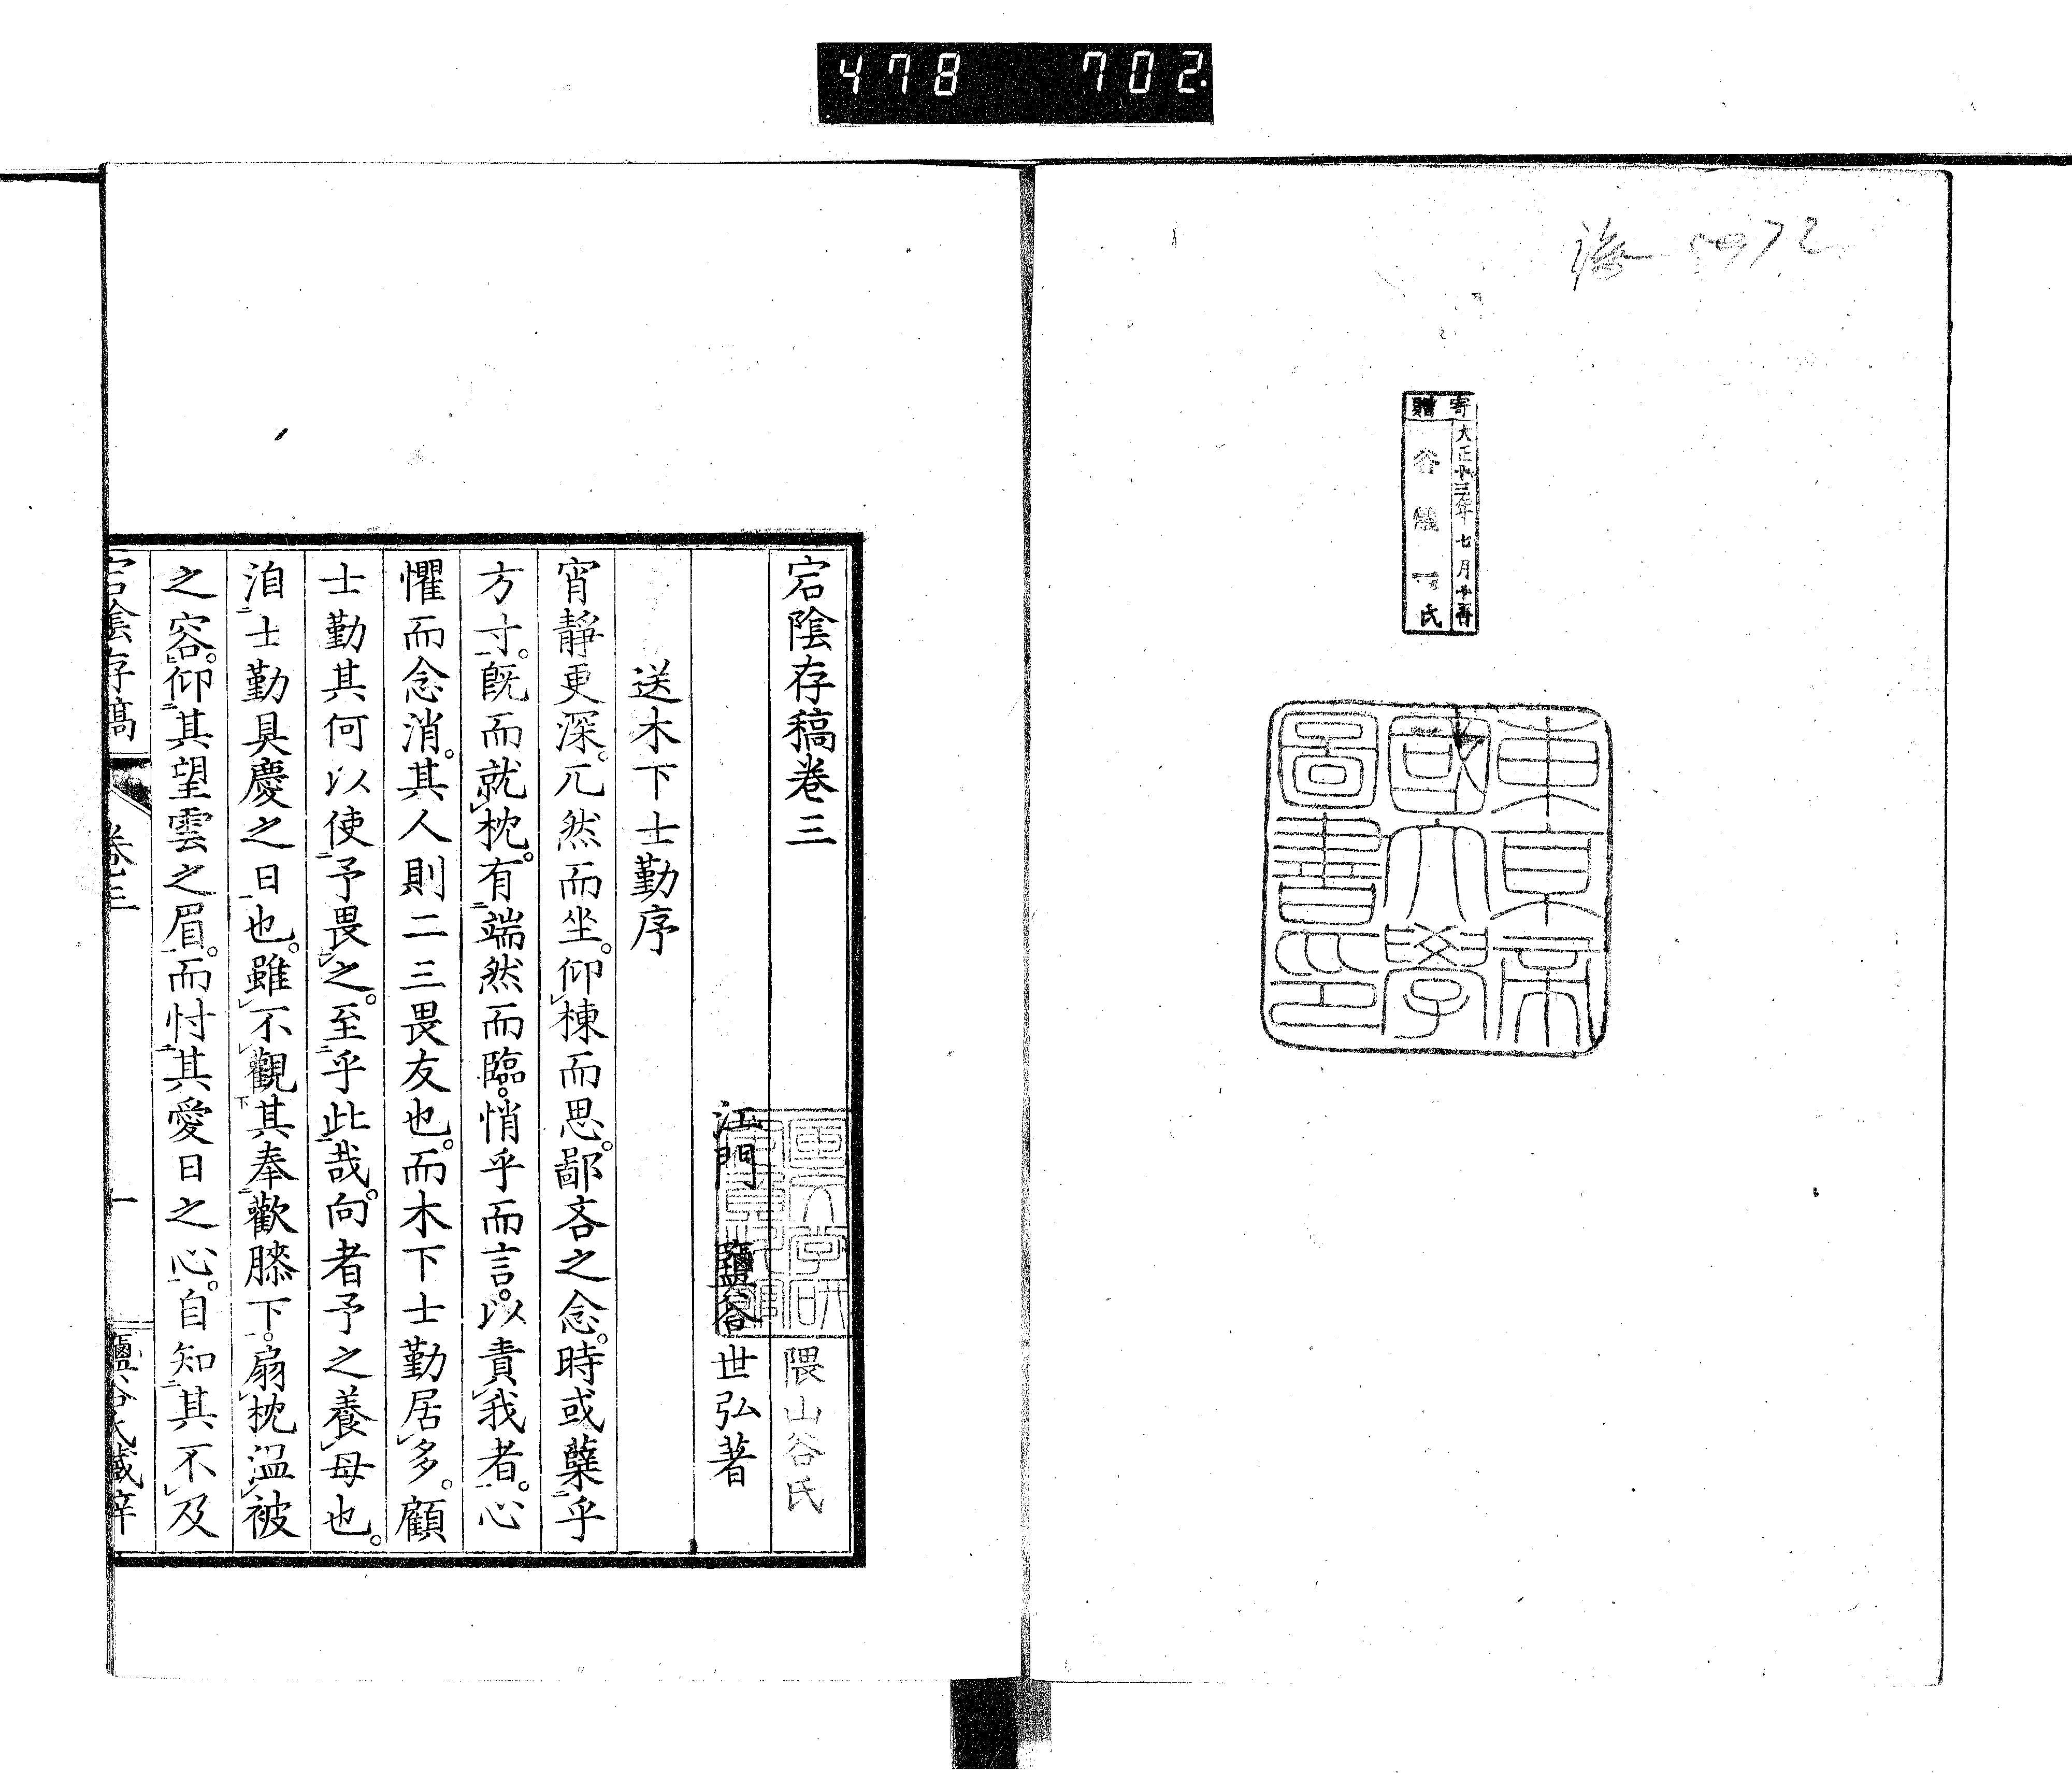 478 702
寄贈
大正十三年七月
谷 氏
東京帝
國大學
圖書印
宕陰存稿卷三
隈山谷氏
江門 鹽谷世弘著
送木下士勤序
宵靜更深。兀然而坐。仰棟而思。鄙吝之念。時或蘖乎
方寸。既而就枕。有端然而臨。悄乎而言。以責我者。心
懼而念消。其人則二三畏友也。而木下士勤居多。顧
士勤其何以使予畏之。至乎此哉。向者予之養母也。
洎士勤具慶之日也。雖不觀其奉歡膝下。扇枕溫被
之容。仰其望雲之眉。而忖其愛日之心。自知其不及
宕陰存稿 卷三 一 鹽谷氏藏梓